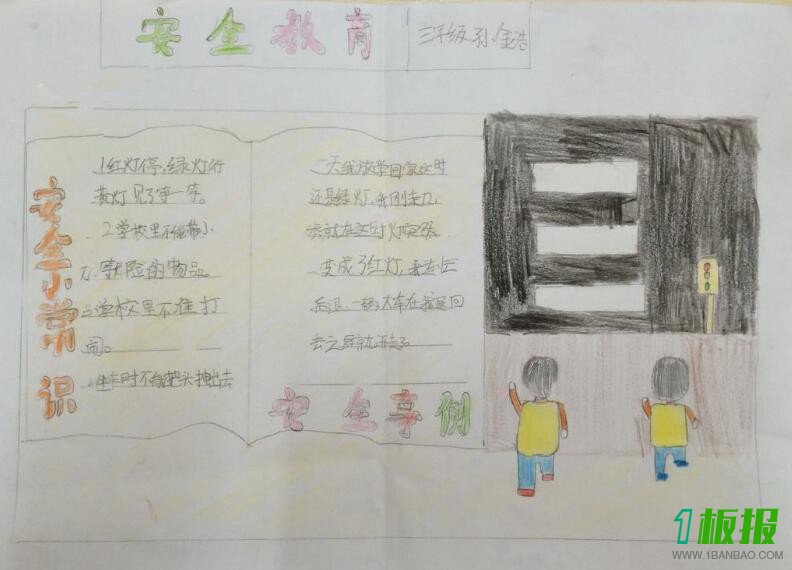 安全教育
三年级 孙金浩
安全小常识
1红灯停,绿灯行
黄灯见了等一等。
2学校里不能带小
刀、等险的物品。
3学校里不准打
闹。
4坐车时不能把头抻出去
一天我放学回家这时
还是绿灯,我刚走几
步就在这时灯突然
变成了红灯,我赶忙
后退一辆大车在我退回
去之后就开走了
安全事例
1板报
WWW.1BANBAO.COM